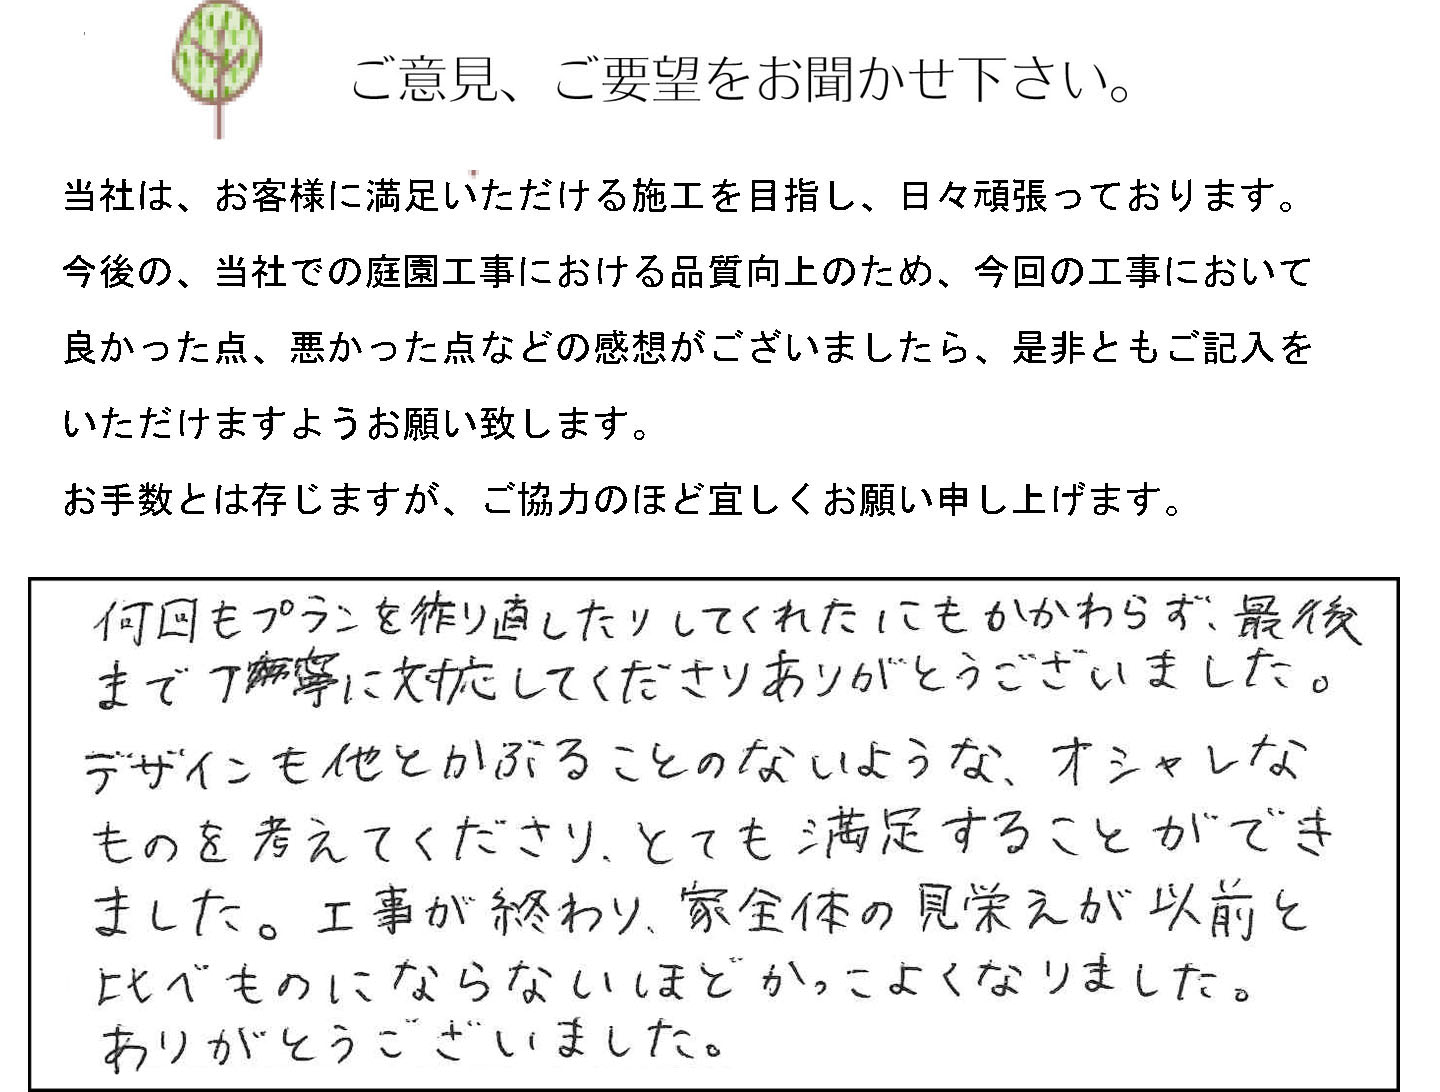 ご意見、ご要望をお聞かせ下さい。
当社は、お客様に満足いただける施工を目指し、日々頑張っております。
今後の、当社での庭園工事における品質向上のため、今回の工事において
良かった点、悪かった点などの感想がございましたら、是非ともご記入を
いただけますようお願い致します。
お手数とは存じますが、ご協力のほど宜しくお願い申し上げます。
何回もプランを作り直したりしてくれたにもかかわらず、最後
まで丁寧に対応してくださりありがとうございました。
デザインも他とかぶることのないような、オシャレな
ものを考えてくださり、とても満足することができ
ました。工事が終わり、家全体の見栄えが以前と
比べものにならないほどかっこよくなりました。
ありがとうございました。